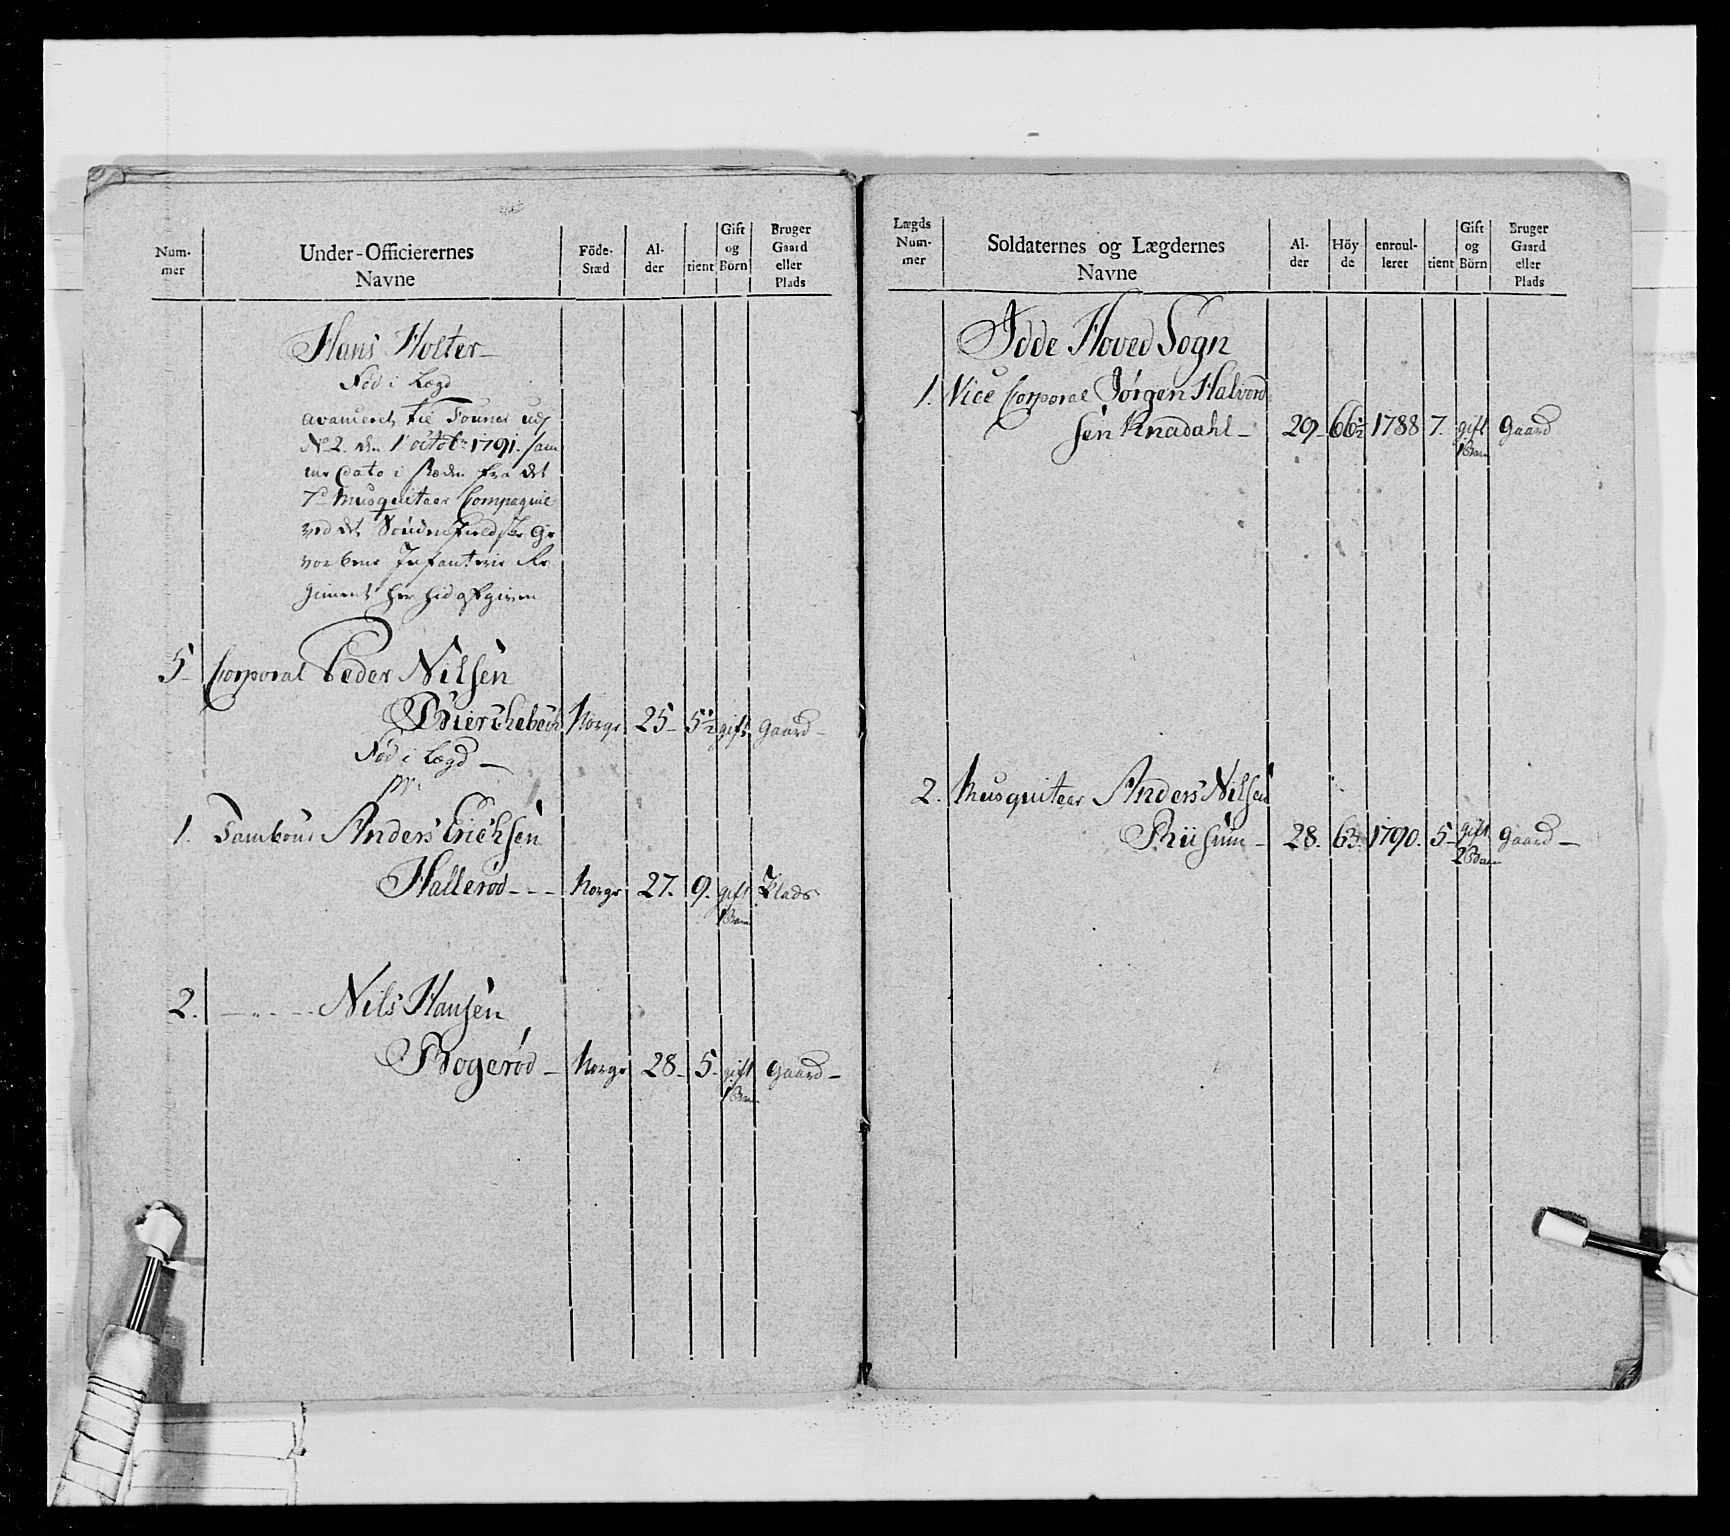 Num-
mer
Under-Officierernes
Navne
Föde-
Stæd
Al-
der
tient
Gift
og
Börn
Bruger
Gaard
eller
Plads
Hans Holter
Fød i Lægd
avanceret til Fourier udj
No 2. den 1 octobr 1791. sam
me Dato i stæden fra det
7de Musquiteer Compagnie
ved det Søndenfieldske Ge
vorbene Infanterie Re
giment her hid afgiven
5 Corporal Peder Nilsen
Bierchebech Norge 25 5½ gift Gaard
Fød i Lægd
1. Tambour Anders Erichsen
Hallerød Norge 27. 9. gift Plads
1 Barn
2. Nils Hansen
Bogerød Norge 28 5 gift Gaard
1 Barn
Lægds
Num-
mer
Soldaternes og Lægdernes
Navne
Al-
der
Höy-
de
enroul-
leret
tient
Gift
og
Börn
Bruger
Gaard
eller
Plads
Idde Hoved Sogn
1. Vice Corporal Jørgen Halvord
sen Knadahl 29 66½ 1788 7. gift Gaard
1 Barn
2. Musquiteer Anders Nilsen
Riisum 28. 1790. 5 gift Gaard
2 Barn